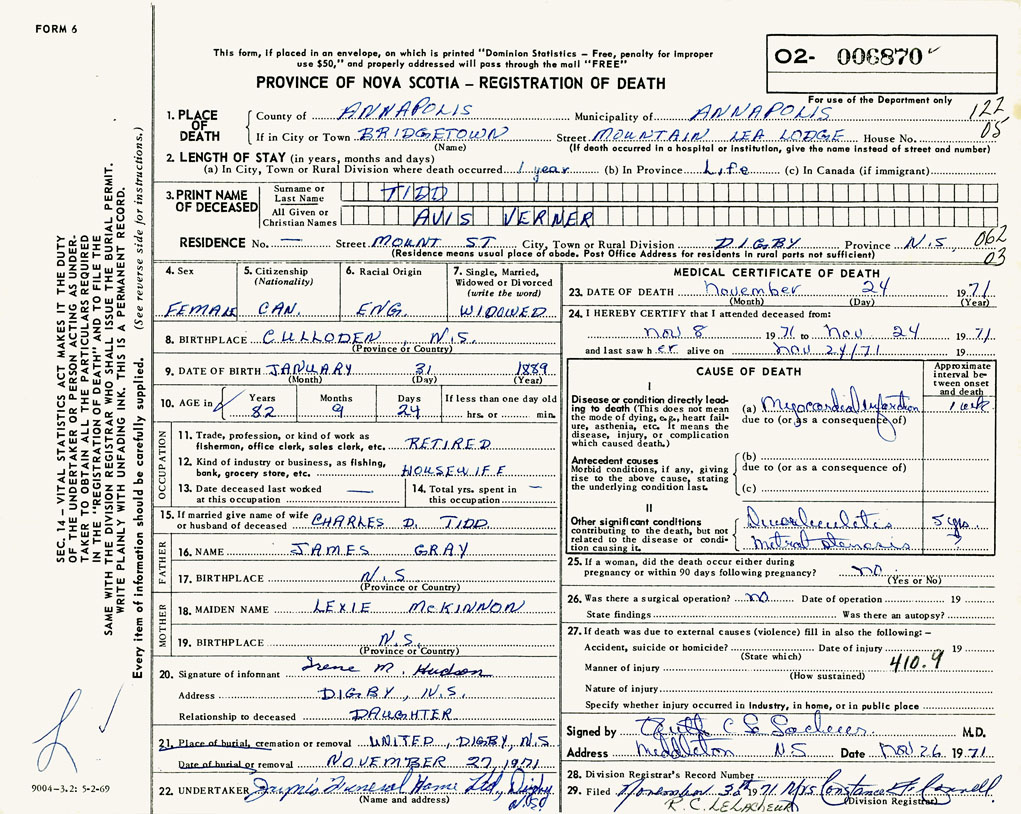 FORM 6
This form, if placed in an envelope, on which is printed "Dominion Statistics – Free, penalty for improper
use $50," and properly addressed will pass through the mail "FREE"
O2- 006870
PROVINCE OF NOVA SCOTIA – REGISTRATION OF DEATH
For use of the Department only
122
05
1. PLACE OF DEATH
County of ANNAPOLIS Municipality of ANNAPOLIS
If in City or Town BRIDGETOWN Street MOUNTAIN LEA LODGE House No.
(Name) (If death occurred in a hospital or institution, give the name instead of street and number)
2. LENGTH OF STAY (in years, months and days)
(a) In City, Town or Rural Division where death occurred 1 year (b) In Province Life (c) In Canada (if immigrant)
3. PRINT NAME OF DECEASED
Surname or Last Name TIDD
All Given or Christian Names AVIS VERNER
RESIDENCE No. — Street MOUNT ST. City, Town or Rural Division DIGBY Province N.S.
062
03
(Residence means usual place of abode. Post Office Address for residents in rural parts not sufficient)
4. Sex
FEMALE
5. Citizenship
(Nationality)
CAN.
6. Racial Origin
ENG.
7. Single, Married,
Widowed or Divorced
(write the word)
WIDOWED
8. BIRTHPLACE CULLODEN N.S.
(Province or Country)
9. DATE OF BIRTH JANUARY 31 1889
(Month) (Day) (Year)
10. AGE in
Years 82
Months 9
Days 24
If less than one day old
hrs. or min.
OCCUPATION
11. Trade, profession, or kind of work as
fisherman, office clerk, sales clerk, etc. RETIRED
12. Kind of industry or business, as fishing,
bank, grocery store, etc. HOUSEWIFE
13. Date deceased last worked
at this occupation —
14. Total yrs. spent in
this occupation —
15. If married give name of wife
or husband of deceased CHARLES D. TIDD
FATHER
16. NAME JAMES GRAY
17. BIRTHPLACE N.S
(Province or Country)
MOTHER
18. MAIDEN NAME LEXIE McKINNON
19. BIRTHPLACE N.S.
(Province or Country)
20. Signature of informant Irene M. Hudson
Address DIGBY, N.S.
Relationship to deceased DAUGHTER
21. Place of burial, cremation or removal UNITED, DIGBY, N.S
Date of burial or removal NOVEMBER 27, 1971
22. UNDERTAKER Funeral Home Ltd, Digby N.S.
(Name and address)
MEDICAL CERTIFICATE OF DEATH
23. DATE OF DEATH November 24 1971
(Month) (Day) (Year)
24. I HEREBY CERTIFY that I attended deceased from:
Nov 8 1971 to Nov. 24 1971
and last saw her alive on Nov 24/71 19
CAUSE OF DEATH
Approximate
interval be-
tween onset
and death
I
Disease or condition directly lead-
ing to death (This does not mean
the mode of dying, e.g., heart fail-
ure, asthenia, etc. It means the
disease, injury, or complication
which caused death.)
(a) Myocardial Infarction 1 week
due to (or as a consequence of)
Antecedent causes
Morbid conditions, if any, giving
rise to the above cause, stating
the underlying condition last.
(b)
due to (or as a consequence of)
(c)
II
Other significant conditions
contributing to the death, but not
related to the disease or condi-
tion causing it.
Diverticulitis 5 yrs.
Mitral stenosis ?
25. If a woman, did the death occur either during
pregnancy or within 90 days following pregnancy? no
(Yes or No)
26. Was there a surgical operation? no Date of operation 19
State findings Was there an autopsy?
27. If death was due to external causes (violence) fill in also the following: –
Accident, suicide or homicide? Date of injury 19
(State which)
410.9
Manner of injury
(How sustained)
Nature of injury
Specify whether injury occurred in industry, in home, or in public place
Signed by M.D.
Address Middleton NS Date Nov 26 1971
28. Division Registrar's Record Number
29. Filed November 30th 1971 Mrs Constance
R. C. LELACHEUR
(Division Registrar)
SEC. 14 – VITAL STATISTICS ACT MAKES IT THE DUTY
OF THE UNDERTAKER OR PERSON ACTING AS UNDER-
TAKER TO OBTAIN ALL THE PARTICULARS REQUIRED
IN THE "REGISTRATION OF DEATH" AND TO FILE THE
SAME WITH THE DIVISION REGISTRAR WHO SHALL ISSUE THE BURIAL PERMIT.
WRITE PLAINLY WITH UNFADING INK. THIS IS A PERMANENT RECORD.
Every item of information should be carefully supplied. (See reverse side for instructions.)
9004-3.2: 5-2-69